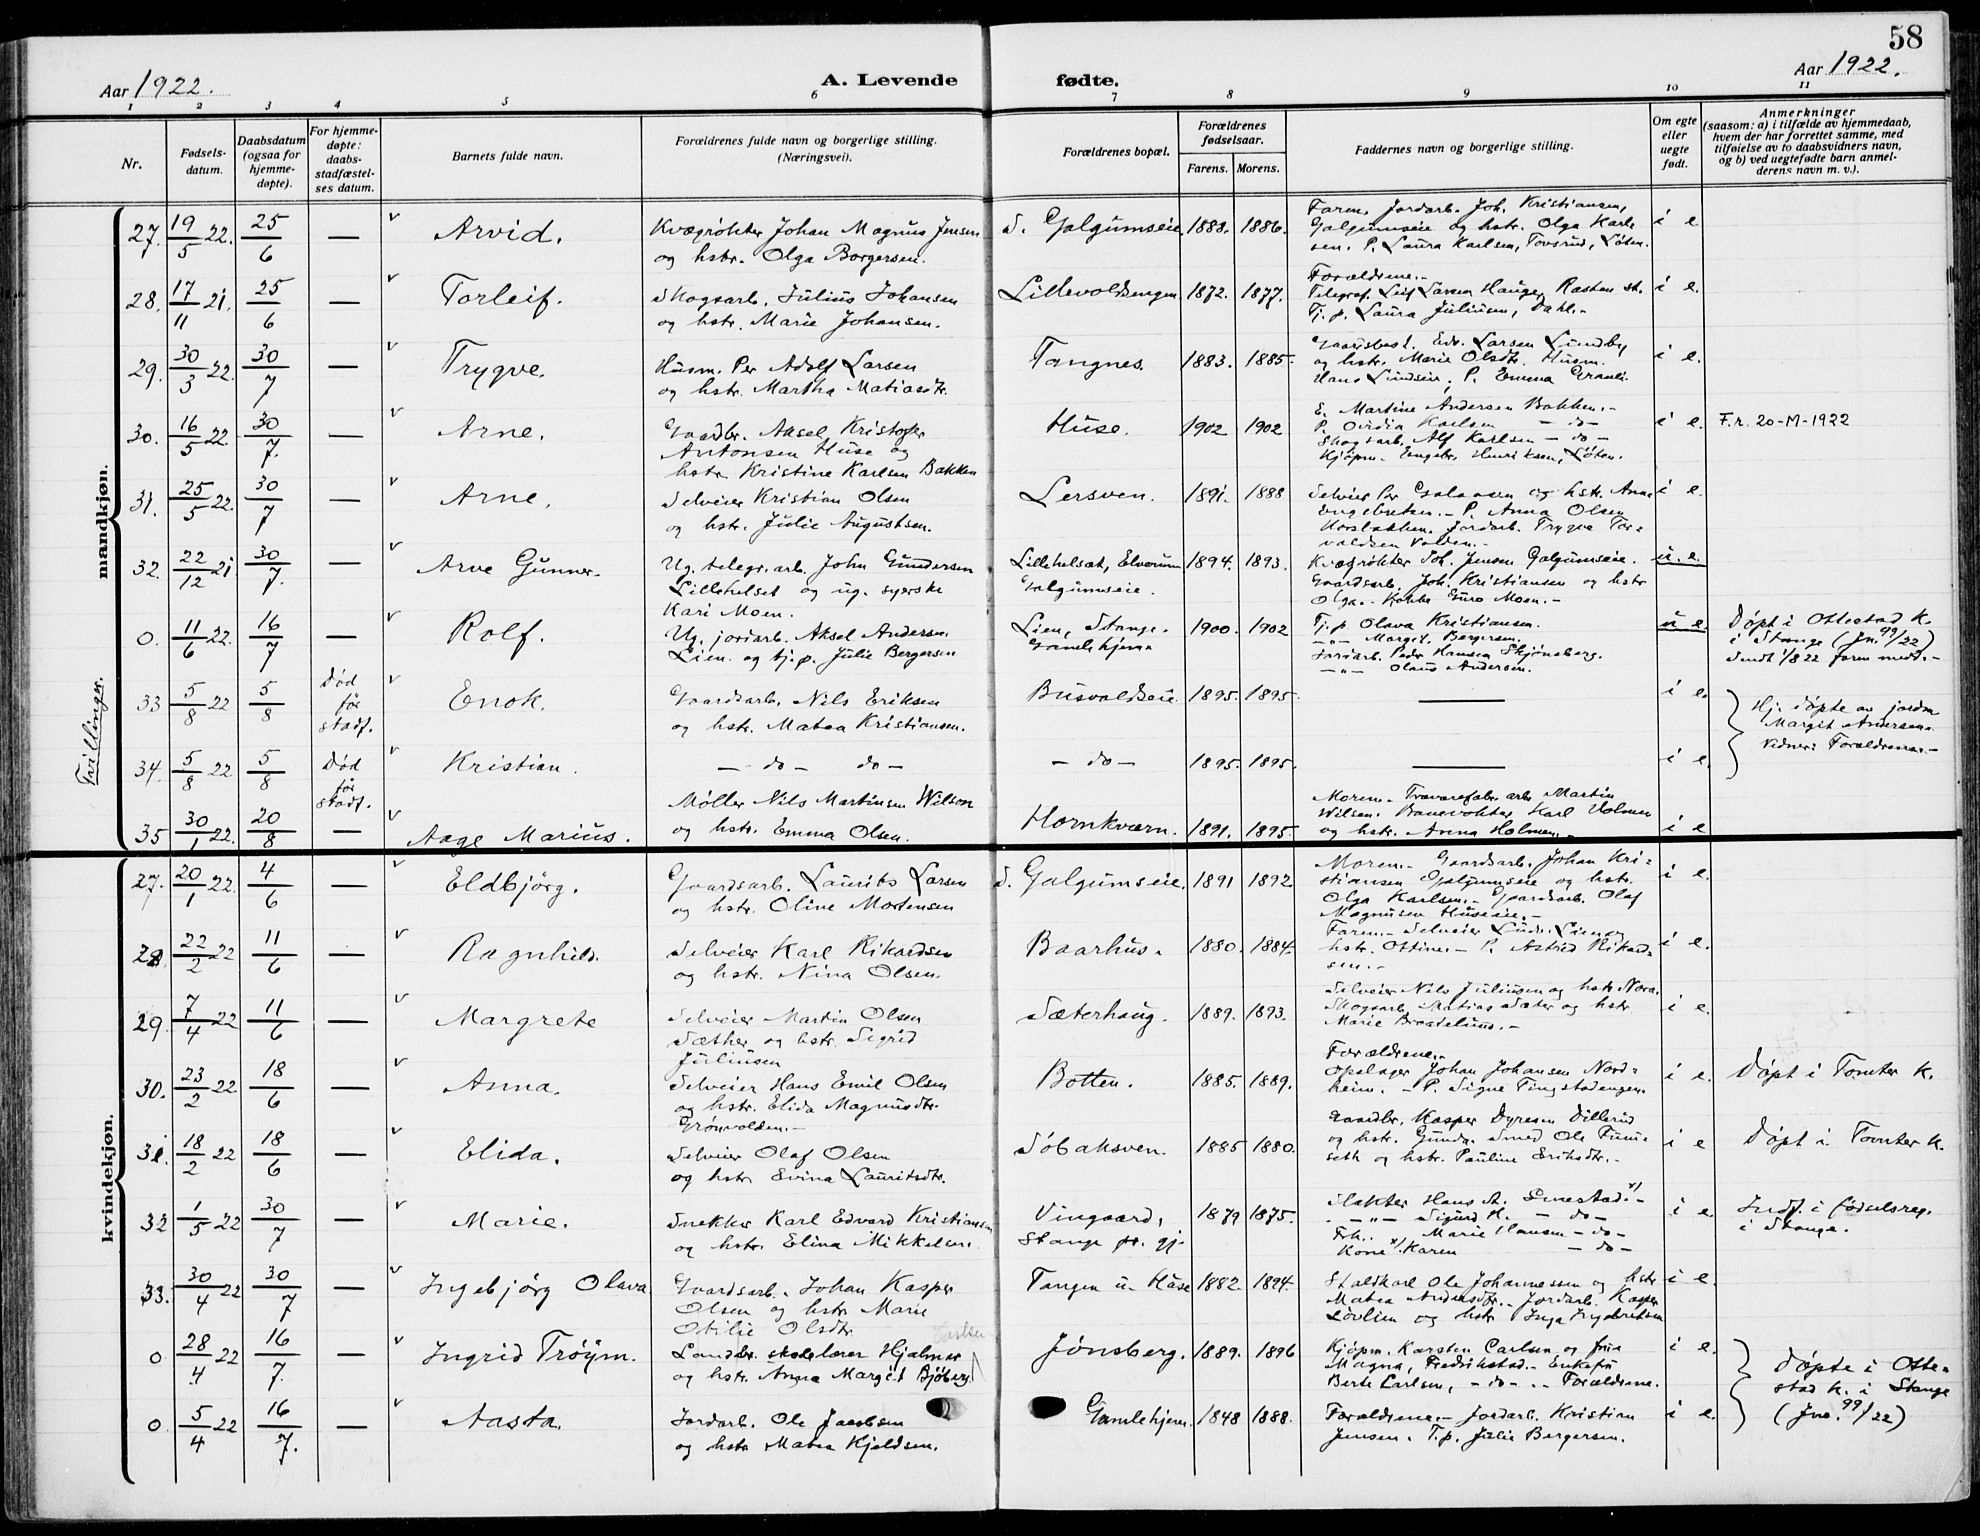 58
Aar 1922.
A. Levende fødte.
Aar 1922.
1 2 3 4 5 6 7 8 9 10 11
Nr.
Fødsels-
datum.
Daabsdatum
(ogsaa for
hjemme-
døpte).
For hjemme-
døpte:
daabs-
stadfæstel-
ses datum.
Barnets fulde navn.
Forældrenes fulde navn og borgerlige stilling.
(Næringsvei).
Forældrenes bopæl.
Forældrenes
fødselsaar.
Farens. Morens.
Faddernes navn og borgerlige stilling.
Om egte
eller
uegte
født.
Anmerkninger
(saasom: a) i tilfælde av hjemmedaab,
hvem der har forrettet samme, med
tilføielse av to daabsvidners navn,
og b) ved uegtefødte barn anmel-
derens navn m. v.).
mandkjøn.
27. 19/5 22. 25/6 — Arvid. Kvægrøkter Johan Magnus Jensen
og hstr. Olga Borgersen.
S. Galgumseie. 1888. 1886.
Faren. Jordarb. Joh. Kristiansen,
Galgumseie og hstr. Olga Karl-
sen. P. Laura Karlsen, Tovsrud, Løten.
i e.
28. 17/11 21. 25/6 — Torleif. Skogsarb. Julius Johansen
og hstr. Marie Johansen.
Lillevoldsengen. 1872. 1877.
Forældrene.-
Telegraf. Leif Larsen Hauge, Rasten st.
Tj.p. Laura Juliusen, Dahl.-
i e.
29. 30/3 22. 30/7 — Trygve. Husm. Per Adolf Larsen
og hstr. Martha Matiasdtr.
Tangnes. 1883. 1885.
Gaardsbest. Edv. Larsen Lundby
og hstr. Marie Olsdtr. Husm.
Hans Lundseie, P. Emma
i e.
30. 16/5 22. 30/7. — Arne. Gaardbr. Aksel Kristofer
Antonsen Huse og
hstr. Kristine Karlsen Bakken
Huse. 1902 1902
E. Martine Andersen Bakken.-
P. Karlsen — do —
Skogsarb. Alf Karlsen — do —
Kjøpm. Engebr. Henriksen, Løten.
i e. F.r. 20-M-1922
31. 25/5 22. 30/7 — Arne. Selveier Kristian Olsen
og hstr. Julie Augustsen.
Lersven. 1891. 1888
Selveier Per og hstr. Anna
Engebretsen.- P. Anna Olsen
Jordarb. Trygve Tor-
valdsen Volden.-
i e.
32. 22/12 21 30/7. — Arve Gunnar. Ug. telegr.arb. John Gundersen
Lillehelset og ug. syerske
Kari Moen.
Lillehelset, Elverum
Galgumseie.
1894. 1893.
Kvægrøkter Joh. Jensen Galgumseie.
Gaardsarb. Joh. Kristiansen og hstr
Olga.- Kokke Moen.-
u. e.
0. 11/6 22. 16/7 — Rolf. Ug. jordarb. Aksel Andersen
Lien og tj.p. Julie Bergersen
Lien, Stange.
Gamlehjem.
1900. 1902
Tj.p Olava Kristiansen.
—"— Margit Bergersen.
Jordarb. Peder Hansen Skjønsberg.
—"— Olaus Andersen.
u e.
Døpt i Ottestad K.
i Stange (Jn. 99/22)
Sendt 1/8 22 form medd.-
Tvillinger.
33 5/8 22 5/8 Død
før
stadf.
Enok. Gaardsarb. Nils Eriksen
og hstr. Matea Kristiansen.
Busvoldseie. 1895. 1895. ——— i e.
Hj. døpte av jordm
Margit Andersen.
Vidner: Forældrene.-
34. 5/8 22 5/8 Død
før
stadf.
Kristian. — do — do — — do — 1895. 1895. ——— i e.
35 30/1 22. 20/8 — Aage Marius. Møller Nils Martinsen Wilson
og hstr. Emma Olsen.
Hornkværn. 1891. 1895.
Moren.- Trævarefabr.arb. Martin
Wilsen. Banevokter Karl Holmen
og hstr. Anna Holmen.-
i e
kvindekjøn.
27. 20/1 22. 4/6 — Eldbjørg. Gaardsarb. Laurits Larsen
og hstr. Oline Mortensen
S. Galgumseie. 1891 1892.
Moren.- Gaardsarb. Johan Kri-
stiansen Galgumseie og hstr.
Olga Karlsen.- Gaardsarb. Olaf
Magnusen Huseeie.-
i e.
28. 22/2 22 11/6 — Ragnhild. Selveier Karl Rikardsen
og hstr. Nina Olsen.
Baarhus. 1880. 1884.
Faren.- Selveier Ludv. Lien og
hstr. Ottine.- P. Astrid Rikard-
sen.-
i e.
29. 7/4 22 11/6 — Margrete Selveier Martin Olsen
Sæther og hstr. Sigrid
Juliusen
Sæterhaug. 1889. 1893.
Selveier Nils Juliusen og hstr Nora.
Skogsarb. Matias Sæter og hstr.
Marie Braatelund.-
i e.
30. 23/2 22. 18/6 — Anna. Selveier Hans Emil Olsen
og hstr. Elida Magnusdtr.
Grønvolden.-
Botten. 1885. 1889.
Forældrene.-
Opslager Johan Johansen Nord-
heim.- P. Signe Tingstadengen.
i e. Døpt i Tomter K.
31. 18/2 22 18/6 — Elida. Selveier Olaf Olsen
og hstr. Evina Lauritsdtr.
Søbaksven. 1885 1880.
Gaardbr. Kasper Dyresen Dillerud
og hstr. Gunda. Smed Ole Furu-
seth og hstr. Pauline Eriksdtr.-
i e Døpt i Tomter K.
32 1/5 22 30/7 — Marie. Snekker Karl Edvard Kristiansen
og hstr. Elina Mikkelsen.
Vingaard,
Stange pr. gj.
1879 1875.
Slakter Hans A. Smestad x/.-
—"— Sigurd H. — do —
Frk. Marie Hansen — do —
Kone x/. Karen — do —
i e. Indf. i fødselsreg.
i Stange.
33. 30/4 22 30/7 — Ingebjørg Olava Gaardsarb. Johan Kasper
Olsen og hstr Marie
Otilie Olsdtr.
Tangen u. Huse 1882. 1894.
Staldkarl Ole Johannessen og hstr
Matea Andersdtr.- Jordarb. Kasper
Løvlien og hstr Inga
i e.
0 28/4 22 16/7. — Ingrid Trøym. Landbr. skolelærer Hjalmar Carlsen
og hstr. Anna Margit Bjøberg
Jønsberg. 1889. 1896
Kjøpm. Karsten Carlsen og frue
Magna, Fredrikstad.- Enkefru
Berte Carlsen, — do —.. Forældrene.
i e.
Døpte i Otte-
stad K. i Stange
(Jnr. 99/22)
0. 5/4 22 16/7. — Aasta. Jordarb. Ole Jacobsen
og hstr. Matea Kjeldsen.
Gamlehjem. 1848 1888.
Forældrene.- Jordarb. Kristian
Jensen. T.p. Julie Bergersen.
i e.